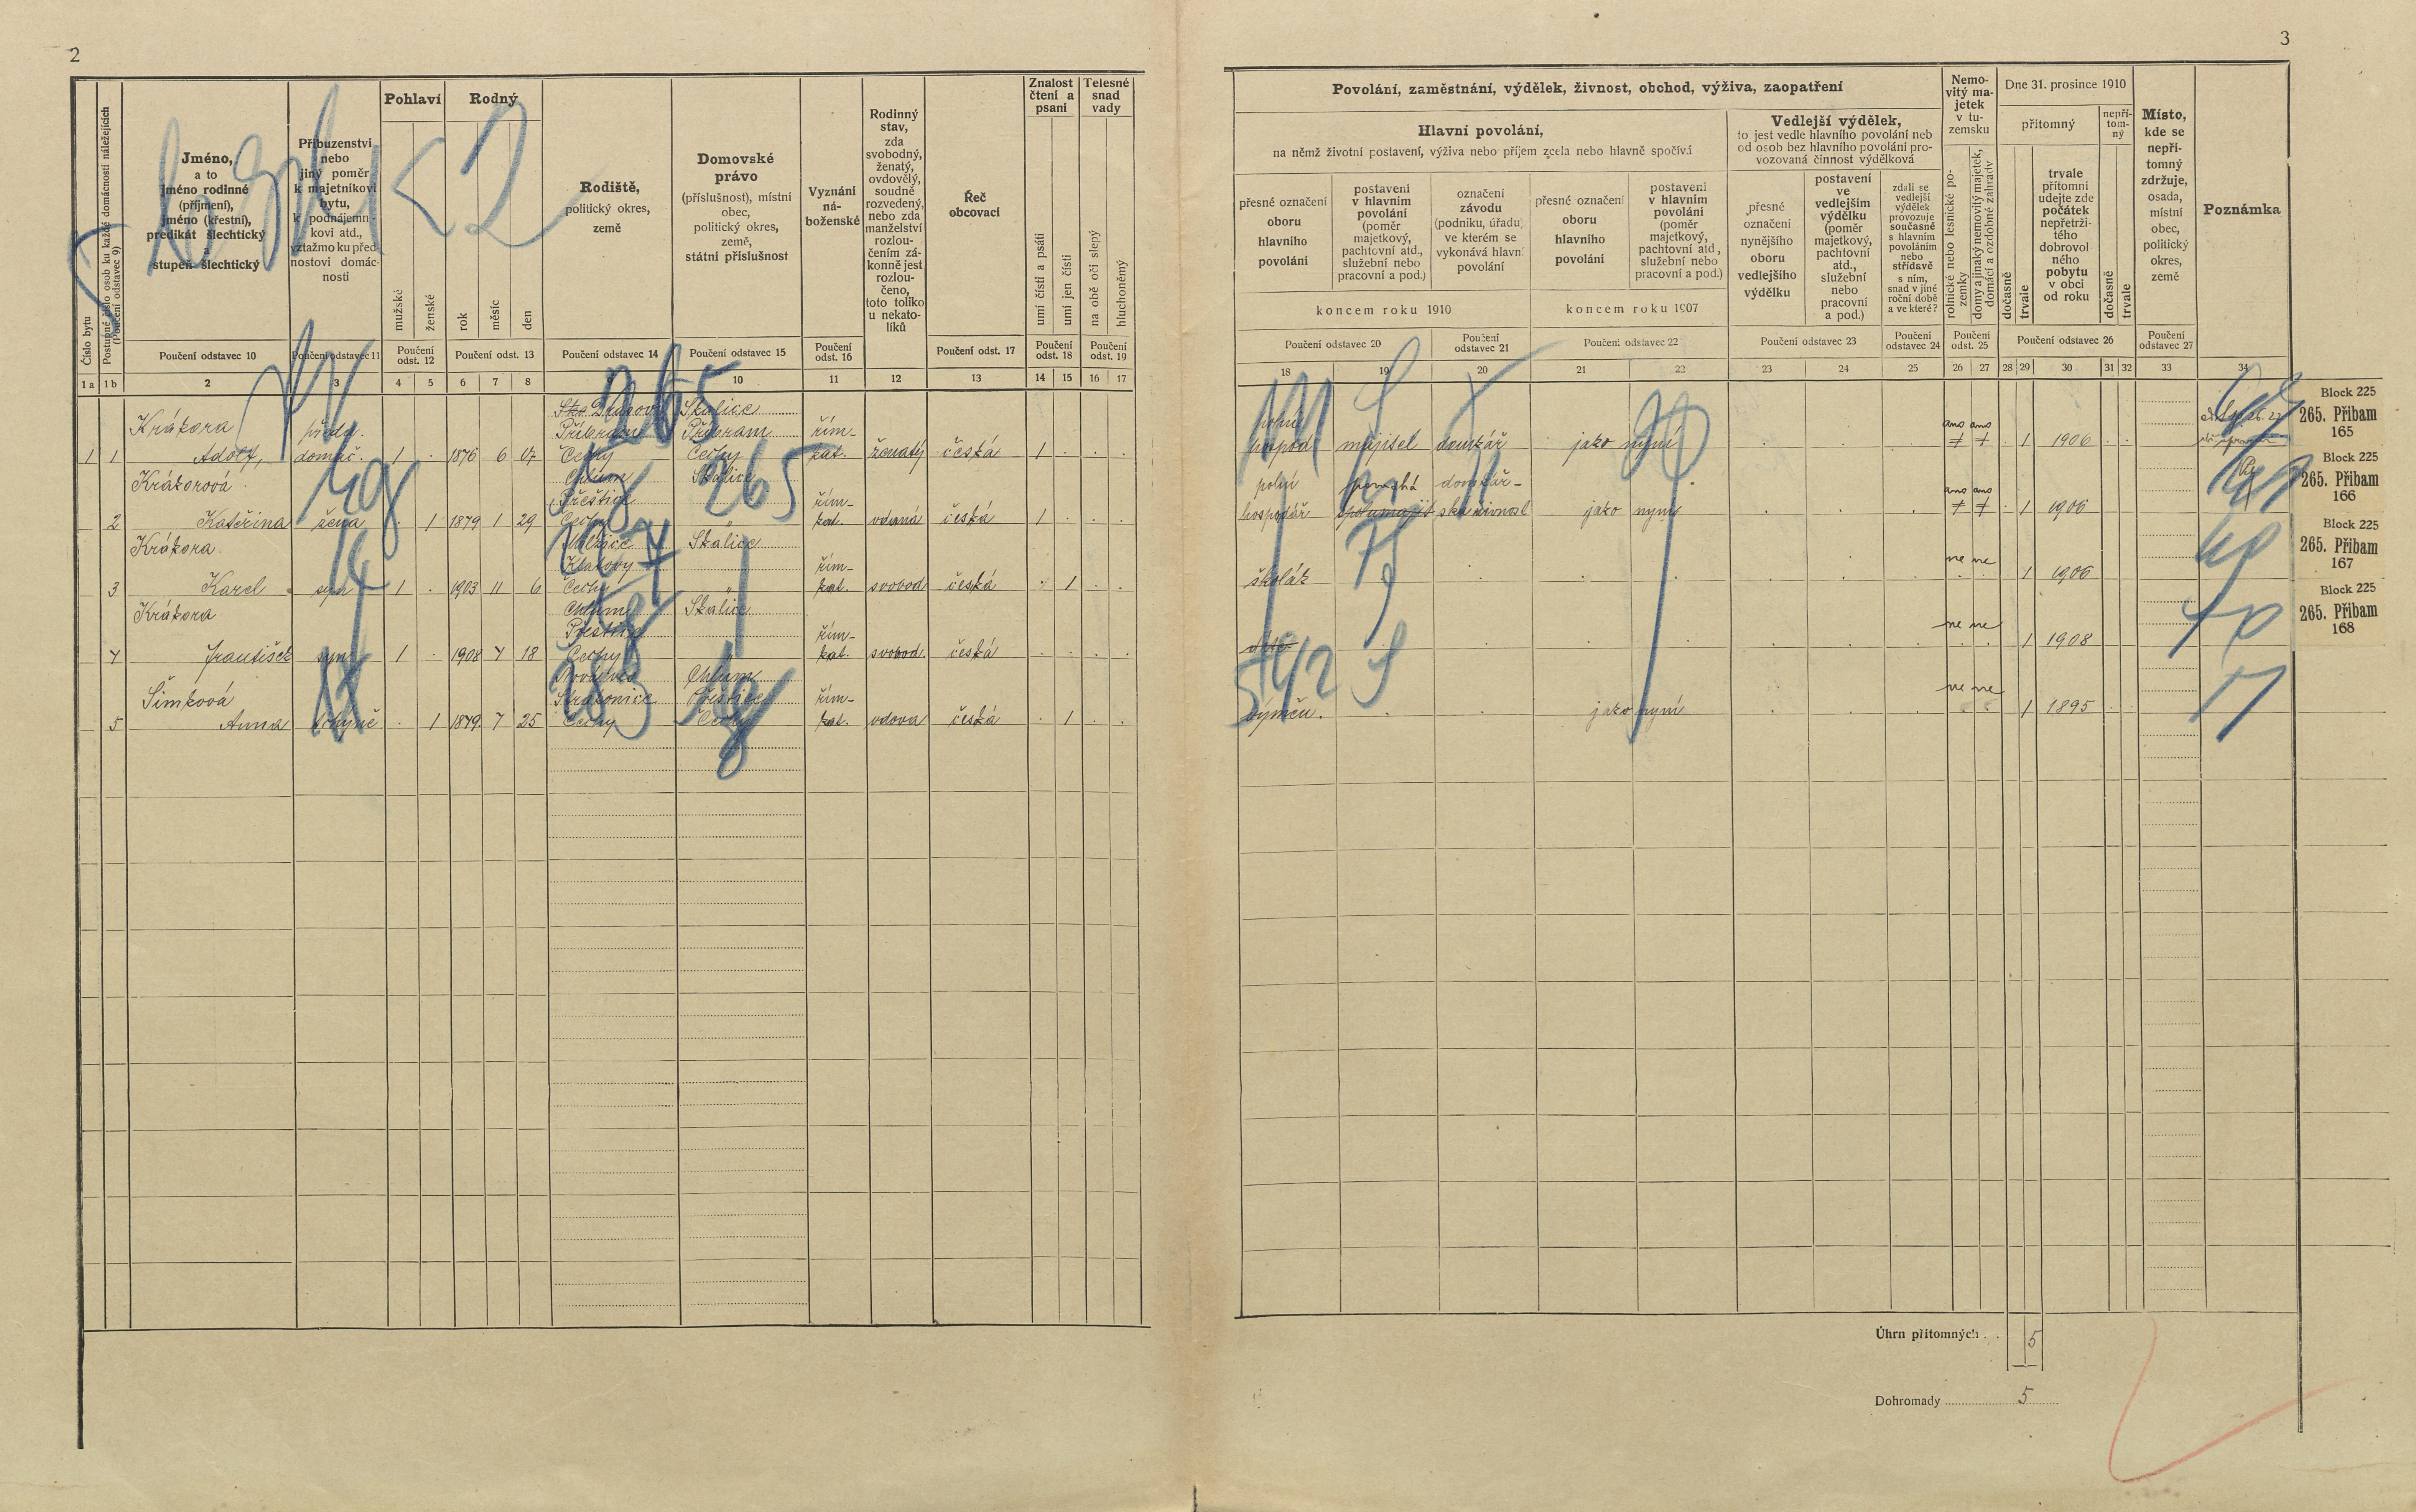 2
Číslo bytu
Postupné číslo osob ku každé domácnosti náležejících
(Poučení odstavec 9)
Jméno,
a to
jméno rodinné
(příjmení),
jméno (křestní),
predikát šlechtický
a
stupeň šlechtický
Poučení odstavec 10
Příbuzenství
nebo
jiný poměr
k majetníkovi
bytu,
k podnájemní-
kovi atd.,
vztažmo ku před-
nostovi domác-
nosti
Poučení odstavec 11
Pohlaví
mužské
ženské
Poučení
odst. 12
Rodný
rok
měsíc
den
Poučení odst. 13
Rodiště,
politický okres,
země
Poučení odstavec 14
Domovské
právo
(příslušnost), místní
obec,
politický okres,
země,
státní příslušnost
Poučení odstavec 15
Vyznání
ná-
boženské
Poučení
odst. 16
Rodinný
stav,
zda
svobodný,
ženatý,
ovdovělý,
soudně
rozvedený,
nebo zda
manželství
rozlou-
čením zá-
konně jest
rozlou-
čeno,
toto toliko
u nekato-
líků
Řeč
obcovací
Poučení odst. 17
Znalost
čtení a
psaní
umí čísti a psáti
umí jen čísti
Poučení
odst. 18
Telesné
snad
vady
na obě oči slepý
hluchoněmý
Poučení
odst. 19
1 a 1 b 2 3 4 5 6 7 8 10 11 12 13 14 15 16 17
Skalice
Krákora předn. Příbram Příbram řím-
1 1 Adolf, domác. 1 . 1876 6 17 Čechy Čechy kat. ženatý česká 1 . . .
Krákorová Chlum Skalice
Přeštice řím-
2 Kateřina žena . 1 1879 1 29 Čechy " kat. vdaná česká 1 . . .
Krákora Skalice
Klatovy řím-
3 Karel syn 1 . 1903 11 6 Čechy " kat. svobod česká . 1 . .
Krákora Chlum Skalice
Přeštice řím-
4 František syn 1 . 1908 4 18 Čechy kat. svobod. česká . . . .
Chlum
Šimková Strakonice Přeštice řím-
5 Anna tchyně . 1 1879. 7 25 Čechy Čechy kat. vdova česká . 1 . .
3
Povolání, zaměstnání, výdělek, živnost, obchod, výživa, zaopatření
Hlavní povolání,
na němž životní postavení, výživa nebo příjem zcela nebo hlavně spočívá
přesné označení
oboru
hlavního
povolání
postavení
v hlavním
povolání
(poměr
majetkový,
pachtovní atd.,
služební nebo
pracovní a pod.)
označení
závodu
(podniku, úřadu)
ve kterém se
vykonává hlavní
povolání
koncem roku 1910
Poučení odstavec 20
Poučení
odstavec 21
přesné označení
oboru
hlavního
povolání
postavení
v hlavním
povolání
(poměr
majetkový,
pachtovní atd.,
služební nebo
pracovní a pod.)
koncem roku 1907
Poučení odstavec 22
Vedlejší výdělek,
to jest vedle hlavního povolání neb
od osob bez hlavního povolání pro-
vozovaná činnost výdělková
přesné
označení
nynějšího
oboru
vedlejšího
výdělku
postavení
ve
vedlejším
výdělku
(poměr
majetkový,
pachtovní
atd.,
služební
nebo
pracovní
a pod.)
Poučení odstavec 23
zdali se
vedlejší
výdělek
provozuje
současně
s hlavním
povoláním
nebo
střídavě
s ním,
snad v jiné
roční době
a ve které?
Poučení
odstavec 24
Nemo-
vitý ma-
jetek
v tu-
zemsku
rolnické nebo lesnické po-
zemky
domy a jinaký nemovitý majetek,
domácí a ozdobné zahrady
Poučení
odst. 25
Dne 31. prosince 1910
přítomný
dočasně
trvale
trvale
přítomní
udejte zde
počátek
nepřetrži-
tého
dobrovol-
ného
pobytu
v obci
od roku
nepří-
tom-
ný
dočasně
trvale
Poučení odstavec 26
Místo,
kde se
nepří-
tomný
zdržuje,
osada,
místní
obec,
politický
okres,
země
Poučení
odstavec 27
Poznámka
18 19 20 21 22 23 24 25 26 27 28 29 30 31 32 33 34
polní ano ano
hospod. majitel domkář jako nyní . . . 1 1906 . .
polní pomáhá domkář- ano ano
hospodář spolumajit. ská živnost jako nyní . . . 1 1906
ne ne
školák . . . . . . . 1 1906
ne ne
dítě . . . . . . . 1 1908
ne ne
výměn. . . jako nyní . . . 1 1895
Block 225
265. Přibam
165
Block 225
265. Přibam
166
Block 225
265. Přibam
167
Block 225
265. Přibam
168
265
265
542
17
Úhrn přítomných . . 5
Dohromady 5